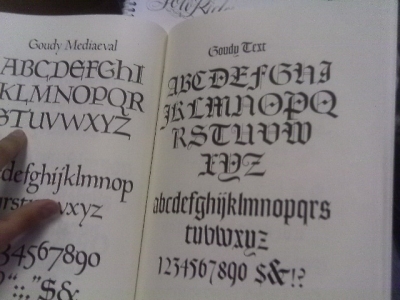 Goudy Mediaeval
ABCDEFGHI
KLMNOPQR
STUVWXYZ
defghijklmnop
vwxyz
34567890
$&
Goudy Text
ABCDEFGHI
JKLMNOPQ
RSTUVW
XYZ
abcdefghijklmnopqrs
tuvwxyz
1234567890 $&!?